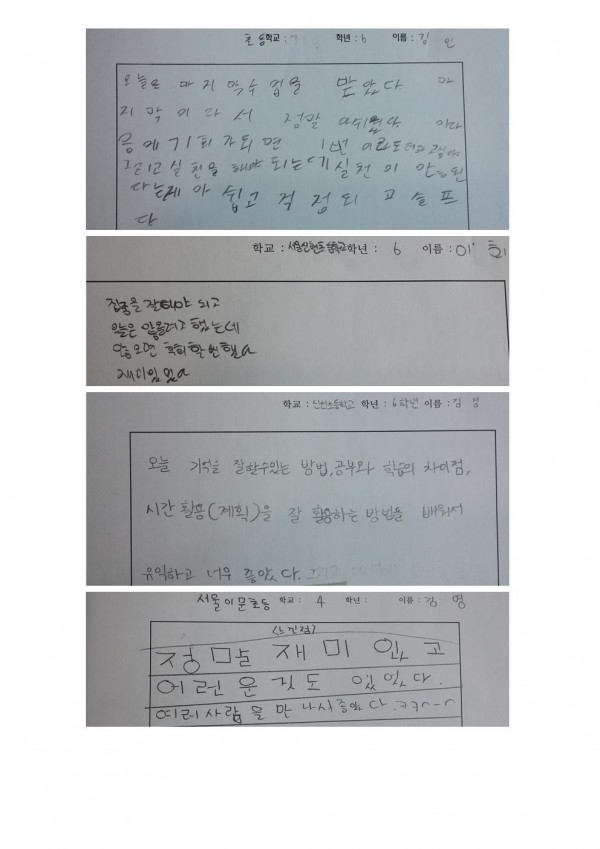 초등학교 : 학년 : 6 이름 : 김 인
오늘은 마지막수업을 받았다 마
지막이라서 정말 아쉬웠다. 이다
음에 기회가되면 1번 이라도더하고싶다
그리고 실천을 해야 되는데 실천이 안된
다는게 아쉽고 걱정되고 슬프
다
학교 : 서울신현초등학교 학년 : 6 이름 : 이 희
집중을 잘해야 되고
오늘은 않올려고 했는데
않오면 후회할 뻔했다
재미있었다
학교 : 신현초등학교 학년 : 6학년 이름 : 김 영
오늘 기억을 잘할수있는 방법, 공부와 학습의 차이점,
시간 활용(계획)을 잘 활용하는 방법을 배워서
유익하고 너무 좋았다. 그리고
서울이문초등 학교 : 4 학년 : 이름 : 김 영
(느낀점)
정말 재미있고
어려운 것도 있었다.
여러사람을 만나서좋았다 ㅋㅋ~~